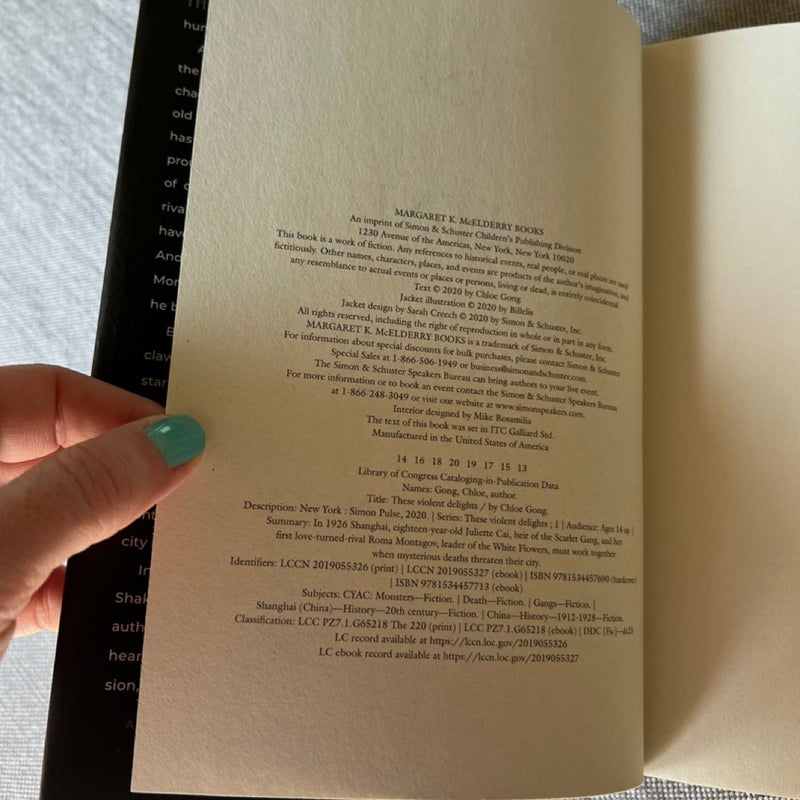 hun
A
the
cha
old
has
pro
of c
riva
have
And
Mor
he b
B
claw
star
city
In
Shak
auth
hear
sion,
A
MARGARET K. McELDERRY BOOKS
An imprint of Simon & Schuster Children's Publishing Division
1230 Avenue of the Americas, New York, New York 10020
This book is a work of fiction. Any references to historical events, real people, or real places are used
fictitiously. Other names, characters, places, and events are products of the author's imagination, and
any resemblance to actual events or places or persons, living or dead, is entirely coincidental.
Text © 2020 by Chloe Gong
Jacket illustration © 2020 by Billelis
Jacket design by Sarah Creech © 2020 by Simon & Schuster, Inc.
All rights reserved, including the right of reproduction in whole or in part in any form.
MARGARET K. McELDERRY BOOKS is a trademark of Simon & Schuster, Inc.
For information about special discounts for bulk purchases, please contact Simon & Schuster
Special Sales at 1-866-506-1949 or business@simonandschuster.com.
The Simon & Schuster Speakers Bureau can bring authors to your live event.
For more information or to book an event contact the Simon & Schuster Speakers Bureau
at 1-866-248-3049 or visit our website at www.simonspeakers.com.
Interior designed by Mike Rosamilia
The text of this book was set in ITC Galliard Std.
Manufactured in the United States of America
14 16 18 20 19 17 15 13
Library of Congress Cataloging-in-Publication Data
Names: Gong, Chloe, author.
Title: These violent delights / by Chloe Gong.
Description: New York : Simon Pulse, 2020. | Series: These violent delights ; 1 | Audience: Ages 14 up. |
Summary: In 1926 Shanghai, eighteen-year-old Juliette Cai, heir of the Scarlet Gang, and her
first love-turned-rival Roma Montagov, leader of the White Flowers, must work together
when mysterious deaths threaten their city.
Identifiers: LCCN 2019055326 (print) | LCCN 2019055327 (ebook) | ISBN 9781534457690 (hardcover)
| ISBN 9781534457713 (ebook)
Subjects: CYAC: Monsters—Fiction. | Death—Fiction. | Gangs—Fiction. |
Shanghai (China)—History—20th century—Fiction. | China—History—1912-1928—Fiction.
Classification: LCC PZ7.1.G65218 The 220 (print) | LCC PZ7.1.G65218 (ebook) | DDC [Fic]—dc23
LC record available at https://lccn.loc.gov/2019055326
LC ebook record available at https://lccn.loc.gov/2019055327